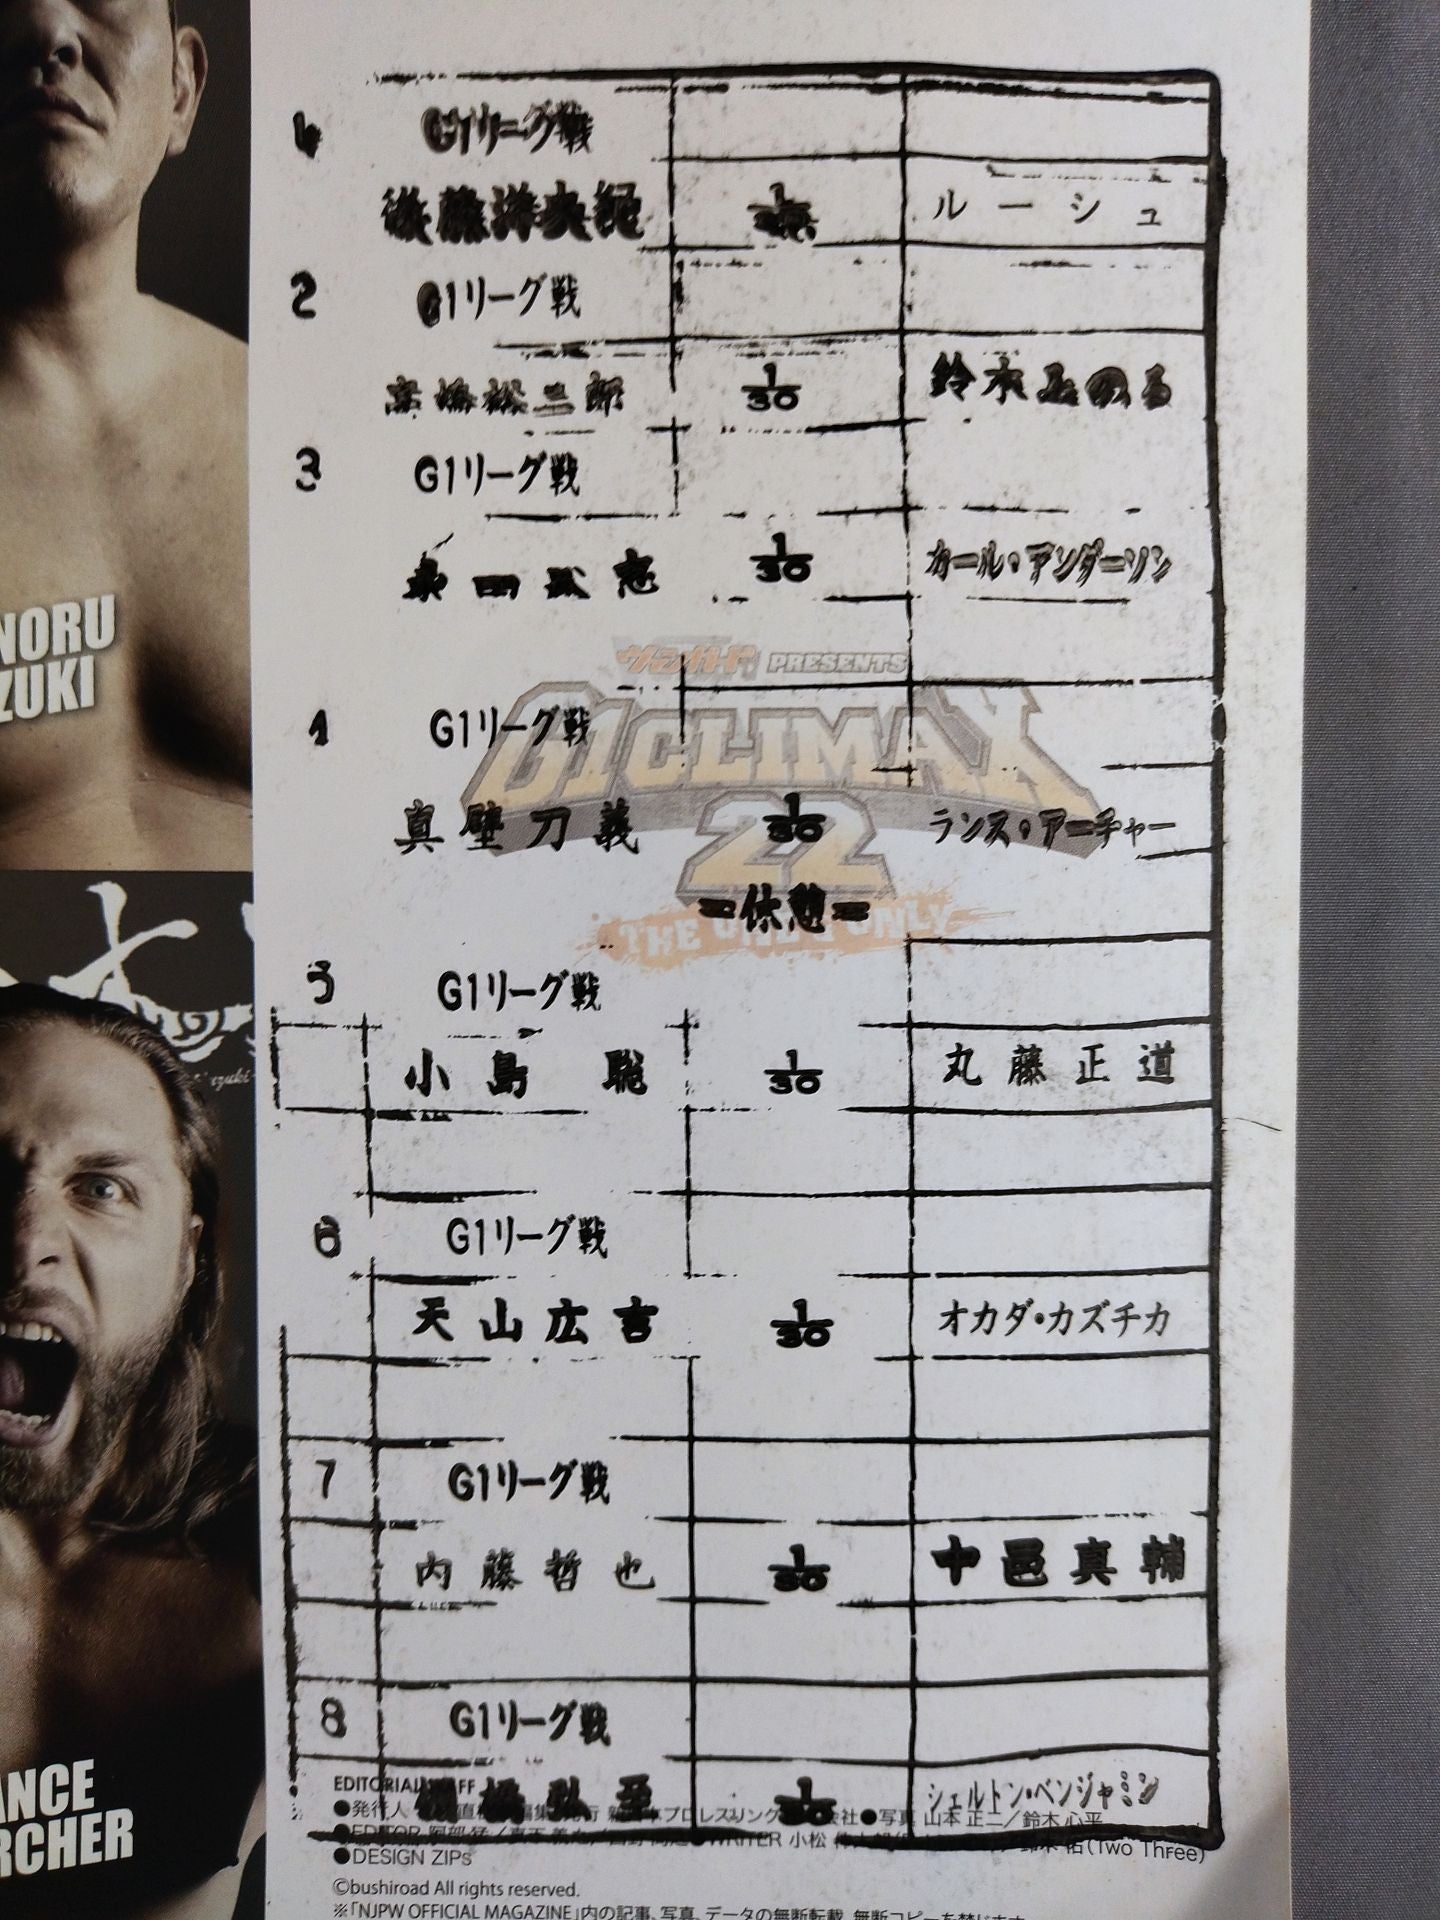 NORU
ZUKI
ANCE
RCHER
G1リーグ戦
後藤洋央紀 ルーシュ
2 G1リーグ戦
高橋裕二郎 1/30 鈴木みのる
3 G1リーグ戦
永田裕志 1/30 カール・アンダーソン
PRESENTS
G1 CLIMAX
22
THE ONE & ONLY
4 G1リーグ戦
真壁刀義 1/30 ランス・アーチャー
=休憩=
5 G1リーグ戦
小島 聡 1/30 丸藤正道
6 G1リーグ戦
天山広吉 1/30 オカダ・カズチカ
7 G1リーグ戦
内藤哲也 1/30 中邑真輔
8 G1リーグ戦
棚橋弘至 シェルトン・ベンジャミン
EDITORIAL STAFF
●発行人 ●写真 山本 正二／鈴木 心平
●EDITOR ●WRITER 小松 (Two Three)
●DESIGN ZIPs
©bushiroad All rights reserved.
※「NJPW OFFICIAL MAGAZINE」内の記事、写真、データの無断転載、無断コピーを禁じます